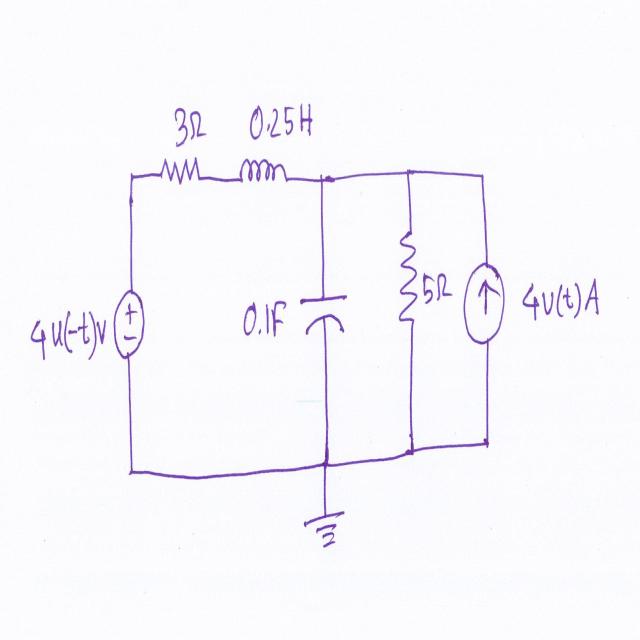 3Ω 0.25H
4u(-t)v
+
-
0.1F
5Ω
4u(t)A